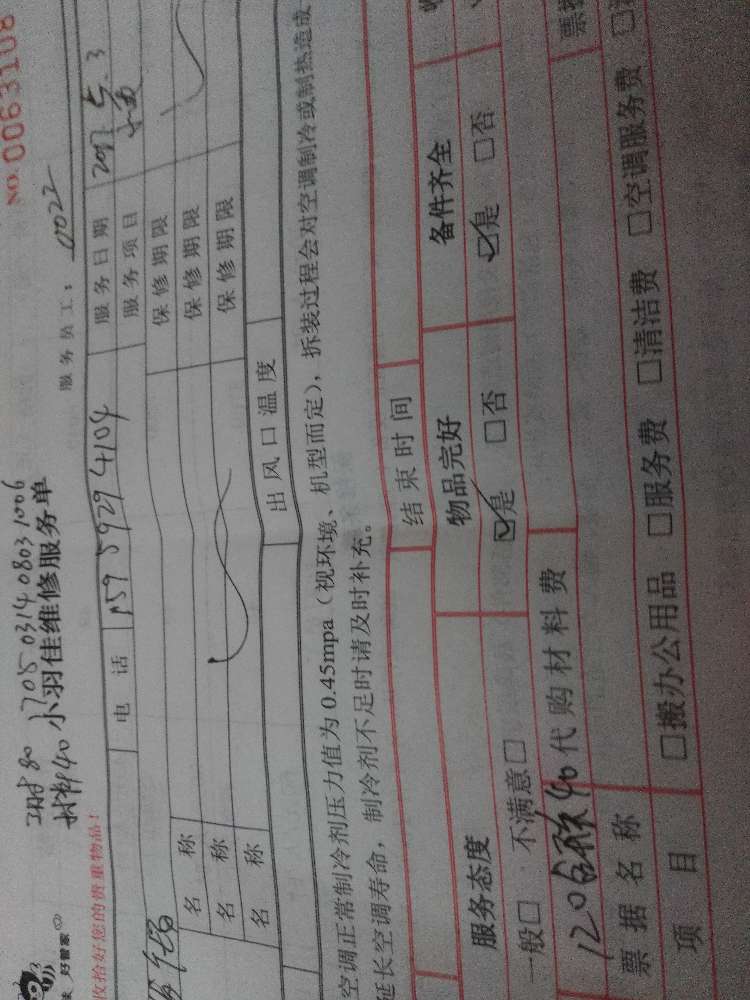 NO.0063108
工时80 1705 0314 0803 1006
材料40 小羽佳维修服务单
好管家
服务员工：0022
收拾好您的贵重物品！
电话 159 5929 4104 服务日期 2017.5.3
服务项目
名称 保修期限
名称 保修期限
名称 保修期限
出风口温度
空调正常制冷剂压力值为0.45mpa（视环境、机型而定），拆装过程会对空调制冷或制热造成
延长空调寿命，制冷剂不足时请及时补充。
结束时间
服务态度 物品完好 备件齐全
一般□ 不满意□ ☑是 □否 ☑是 □否
120含 40 代购材料费
票据名称 票据
项目 □搬办公用品 □服务费 □清洁费 □空调服务费